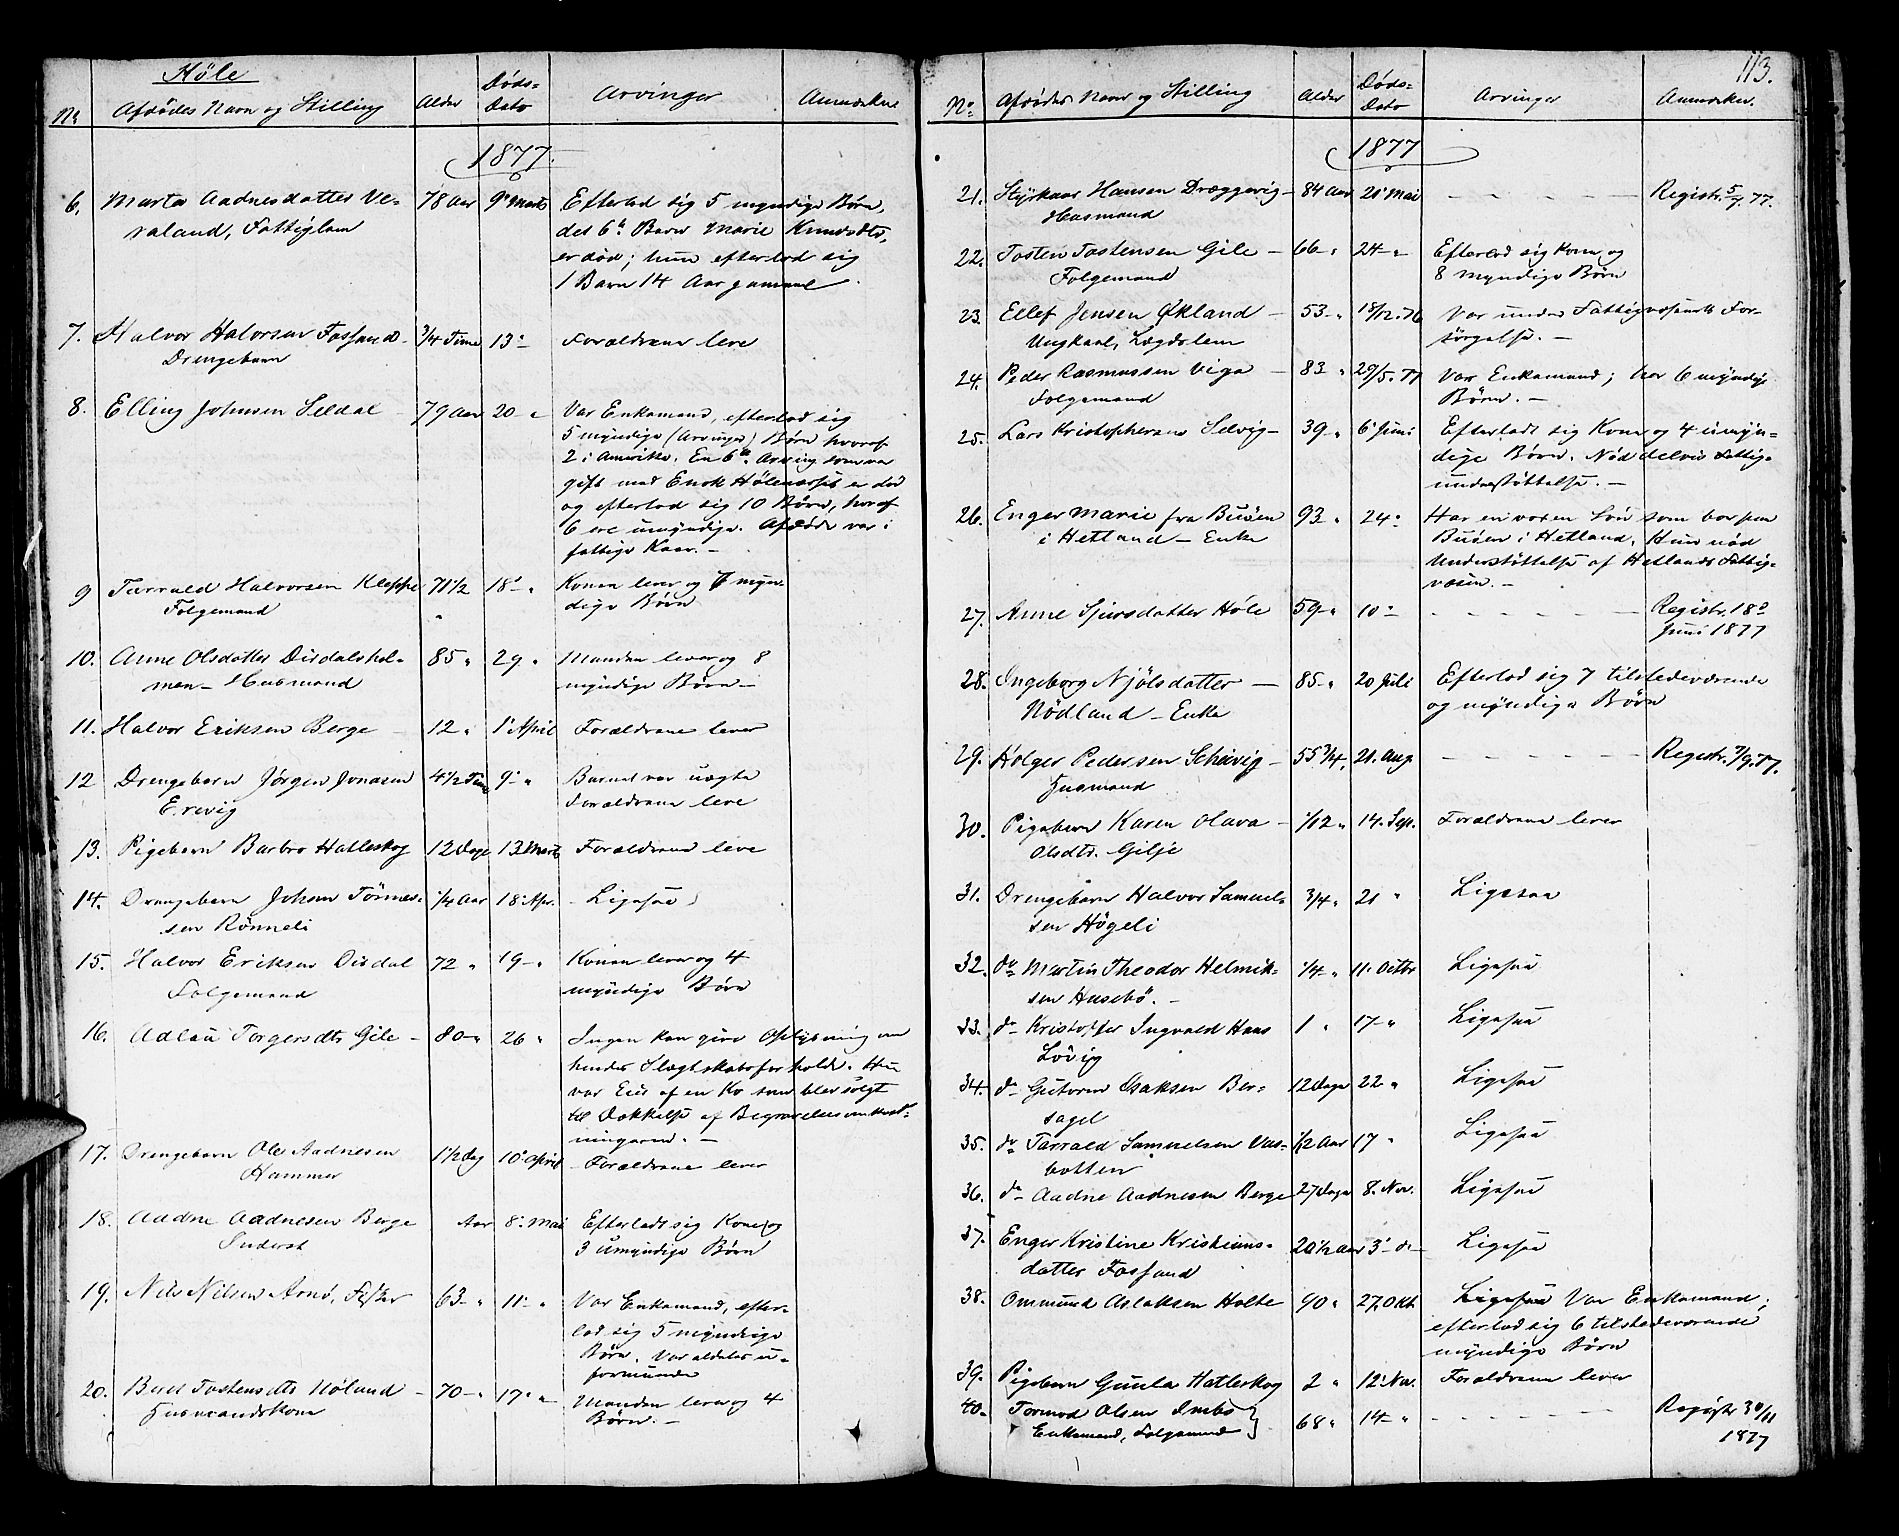 Høle
No Afdødes Navn og Stilling Alder Døds-Dato Arvinger Anmærkn
1877.
6. Marta Aadnesdatter Ve- 78 Aar 9 Marts Efterlod sig 5 myndige Børn,
raland, Fattiglem det 6te Barn Marie Knudsdtr,
er død; hun efterlod sig
1 Barn 14 Aar gammel.
7. Halvor Halvorsen Fossand 3/4 Time 13 - Forældrene leve
Drengebarn
8. Elling Johnsen Seldal 79 Aar 20 - " Var Enkemand, efterlod sig
5 myndige (Arvinger) Børn hvoraf
2 i Amerika. En 6te Arving som var
gift med Enok Hølenæsset er død
og efterlod sig 10 Børn, hvoraf
6 ere umyndige. Afdøde var i
fattige Kaar. -
9 Tarrald Halvorsen Kleppe 71 1/2 " 18 - " Konen lever og 7 myn-
Folgemand dige Børn
10. Anne Olsdatter Dirdalshol- 85 " 29 " Manden lever og 8
men - Husmand myndige Børn -
11. Halvor Eriksen Berge 12 " 1 April Forældrene lever
12 Drengebarn Jørgen Jonasen 4 1/2 Time 9 - " Barnet var uægte
Erevig Forældrene leve
13. Pigebarn Barbro Hatleskog 12 Dage 13 Marts Forældrene leve
14. Drengebarn Johan Tönnes- 1/4 Aar 18 Apr. Ligesaa
sen Rönneli
15. Halvor Eriksen Dirdal 72 " 19 - " Konen lever og 4
Folgemand myndige Børn
16. Adlau Torgersdtr Gile - 80 - " 26 " Ingen kan give Oplysning om
hendes Slægtskabsforholde. Hun
var Eier af en Ko som blev solgt
til Dækkelse af Begravelsesomkost-
ningerne. -
17. Drengebarn Ole Aadnesen 1 1/2 Dag 10 April - Forældrene lever
Hammer
18. Aadne Aadnesen Berge Aar 8 Mai Efterlod sig Kone og
Inderst 3 umyndige Børn
19. Nils Nilsen Arnø, Fisker 63 - " 11 - " Var Enkemand, efter-
lod sig 5 myndige
Børn. Var aldeles u-
formuende
20. Beret Tostensdtr Nöland - 70 - " 17 - " Manden lever og 4
Husmandskone Børn. -
113.
No. Afdødes Navn og Stilling Alder Døds-Dato Arvinger Anmærkn.
1877
21. Styrkaar Hansen Dræggevig - 84 Aar 21 Mai - - - - - - Registr. 5/7. 77.
Husmand
22. Tosten Tostensen Gile - 66 - " 24 - " Efterlod sig Kone og
Folgemand 8 myndige Børn
23. Ellef Jensen Økland - 53 - " 18/12. 76 Var under Fattigvæsenets For-
Ungkarl, Lægdslem sørgelse. -
24. Peder Rasmussen Viga - 83 " 29/5. 77 Var Enkemand; har 6 myndige
Folgemand Børn. -
25. Lars Kristophersen Selvig - 39 - " 6 Juni Efterlod sig Kone og 4 umyn-
dige Børn. Nød delvis Fattig-
understøttelse. -
26. Enger Marie fra Buöen 93 " 24 - Har en voxen Søn som bor paa
i Hetland - Enke Buöen i Hetland. Hun nød
Understøttelse af Hetlands Fattig-
væsen. -
27. Anne Sjursdatter Høle 59 - " 10 - - - - - - - Registr. 18
Juni 1877
28. Ingeborg Njölsdatter - 85 - " 20 Juli Efterlod sig 7 tilstedeværende
Nödland - Enke og myndige Børn
29. Holger Pedersen Scheivig - 55 3/4 " 21. Aug. - - - - - - Registr. 7/9. 77.
Husmand
30. Pigebarn Karen Olava - 1/12 " 14. Sep. Forældrene lever
Olsdtr. Gilje
31. Drengebarn Halvor Samuel- 3/4 " 21 " Ligesaa
sen Högeli
32. do Martin Theodor Helmik- 1/4 " 11. Octbr Ligesaa
sen Husebö. -
33. do Kristoffer Ingvald Hans 1 " 17 - " Ligesaa
Lövig
34. do Gutorm Isaksen Ber- 12 Dage 22 " Ligesaa
sagel
35. do Tarrald Samuelsen Vas- 1/2 Aar 17 " Ligesaa
botten
36. do Aadne Aadnesen Berge 27 Dage 8. Nov. Ligesaa
37. Enger Kristine Kristians- 20 1/2 Aar 3 - do Ligesaa
datter Fossand
38. Ommund Aslaksen Holte 90 " 27 Okt. Ligesaa Var Enkemand;
efterlod sig 6 tilstedeværende
myndige Børn
39. Pigebarn Gunla Hatleskog 2 " 12 Nov. Forældrene lever
40. Tormod Olsen Imbs 68 " 14 - " - - - - - - Registr 30/11
Enkemand, Folgemand 1877